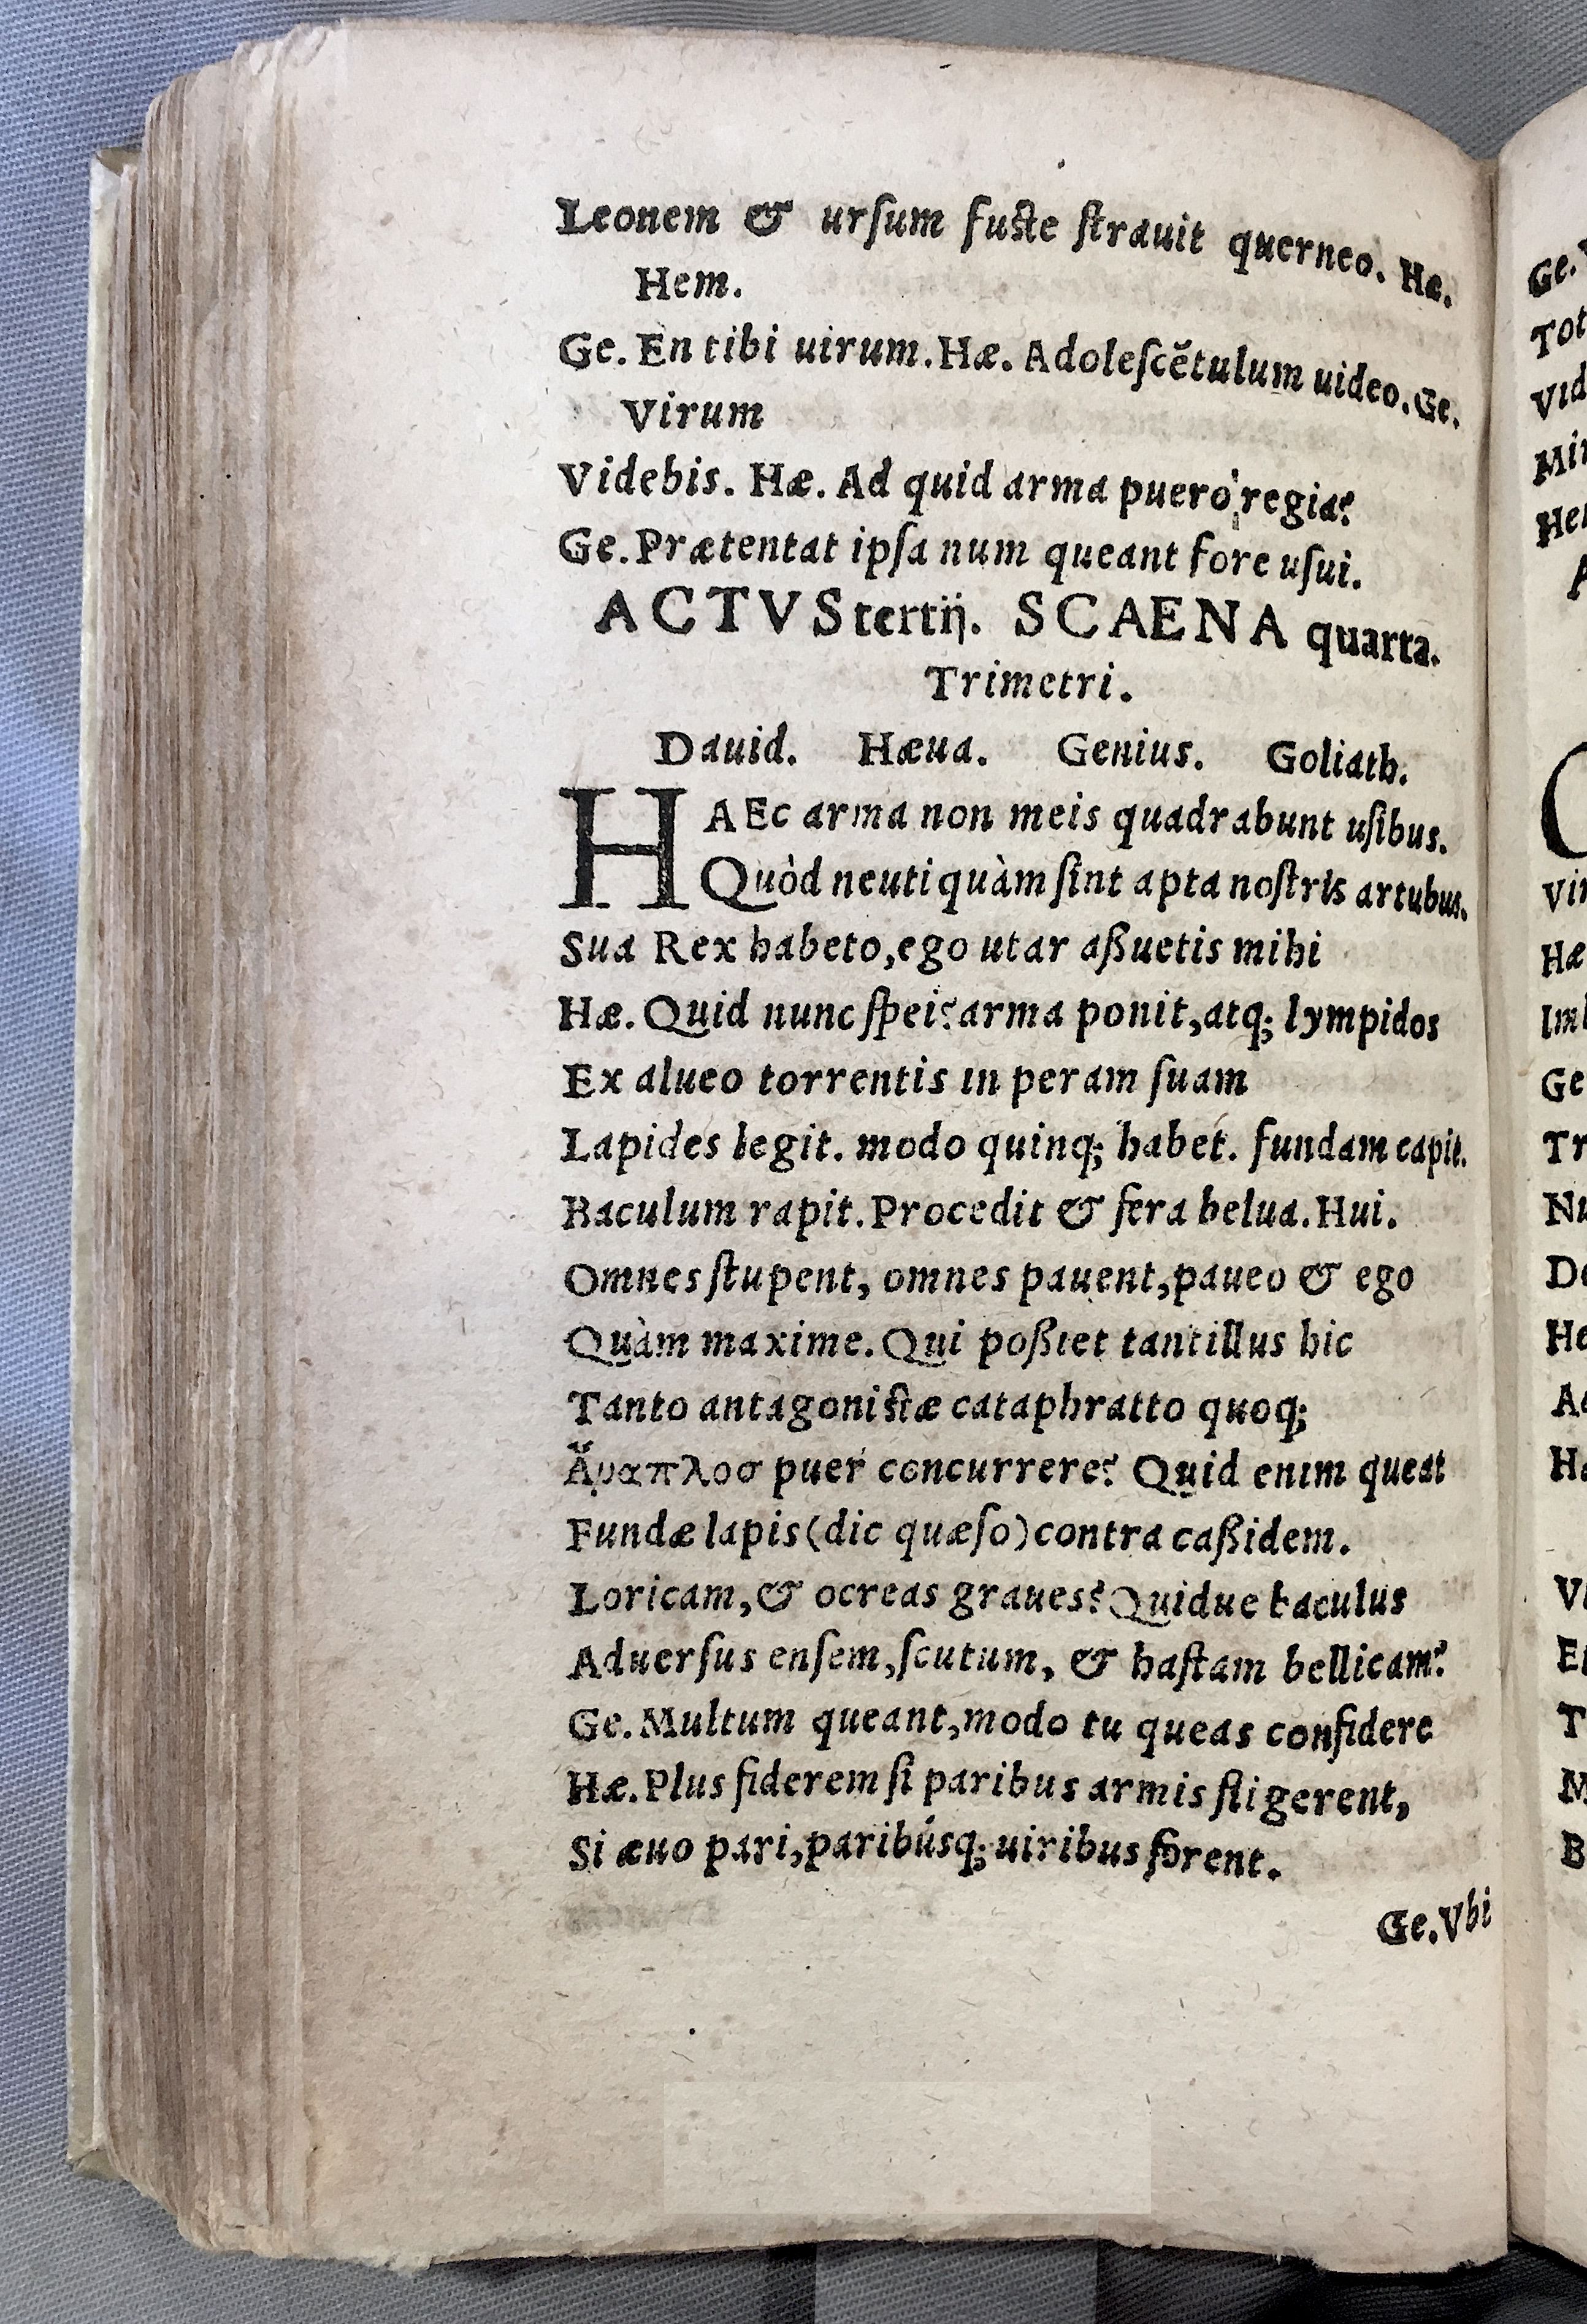 Leonem & urſum fuſte ſtrauit querneo. Hæ.
Hem.
Ge. En tibi uirum. Hæ. Adoleſcẽtulum uideo. Ge.
Virum
Videbis. Hæ. Ad quid arma puero regia?
Ge. Prætentat ipſa num queant fore uſui.
ACTVS tertij. SCAENA quarta.
Trimetri.
Dauid. Hæua. Genius. Goliath.
HAEc arma non meis quadrabunt uſibus.
Quòd neutiquàm ſint apta noſtris artubus.
Sua Rex habeto, ego utar aßuetis mihi
Hæ. Quid nunc ſpei? arma ponit, atq; lympidos
Ex alueo torrentis in peram ſuam
Lapides legit. modo quinq; habet. fundam capit.
Baculum rapit. Procedit & fera belua. Hui.
Omnes ſtupent, omnes pauent, paueo & ego
Quàm maxime. Qui poßiet tantillus hic
Tanto antagoniſtæ cataphratto quoq;
Ἄναπλοσ puer concurrere? Quid enim queat
Fundæ lapis (dic quæſo) contra caßidem.
Loricam, & ocreas graues? Quidue baculus
Aduerſus enſem, ſcutum, & haſtam bellicam?
Ge. Multum queant, modo tu queas confidere
Hæ. Plus fiderem ſi paribus armis fligerent,
Si æuo pari, paribúsq; uiribus forent.
Ge. Vbi
Ge.
Tot
Vid
Hæ
Ge
Tr